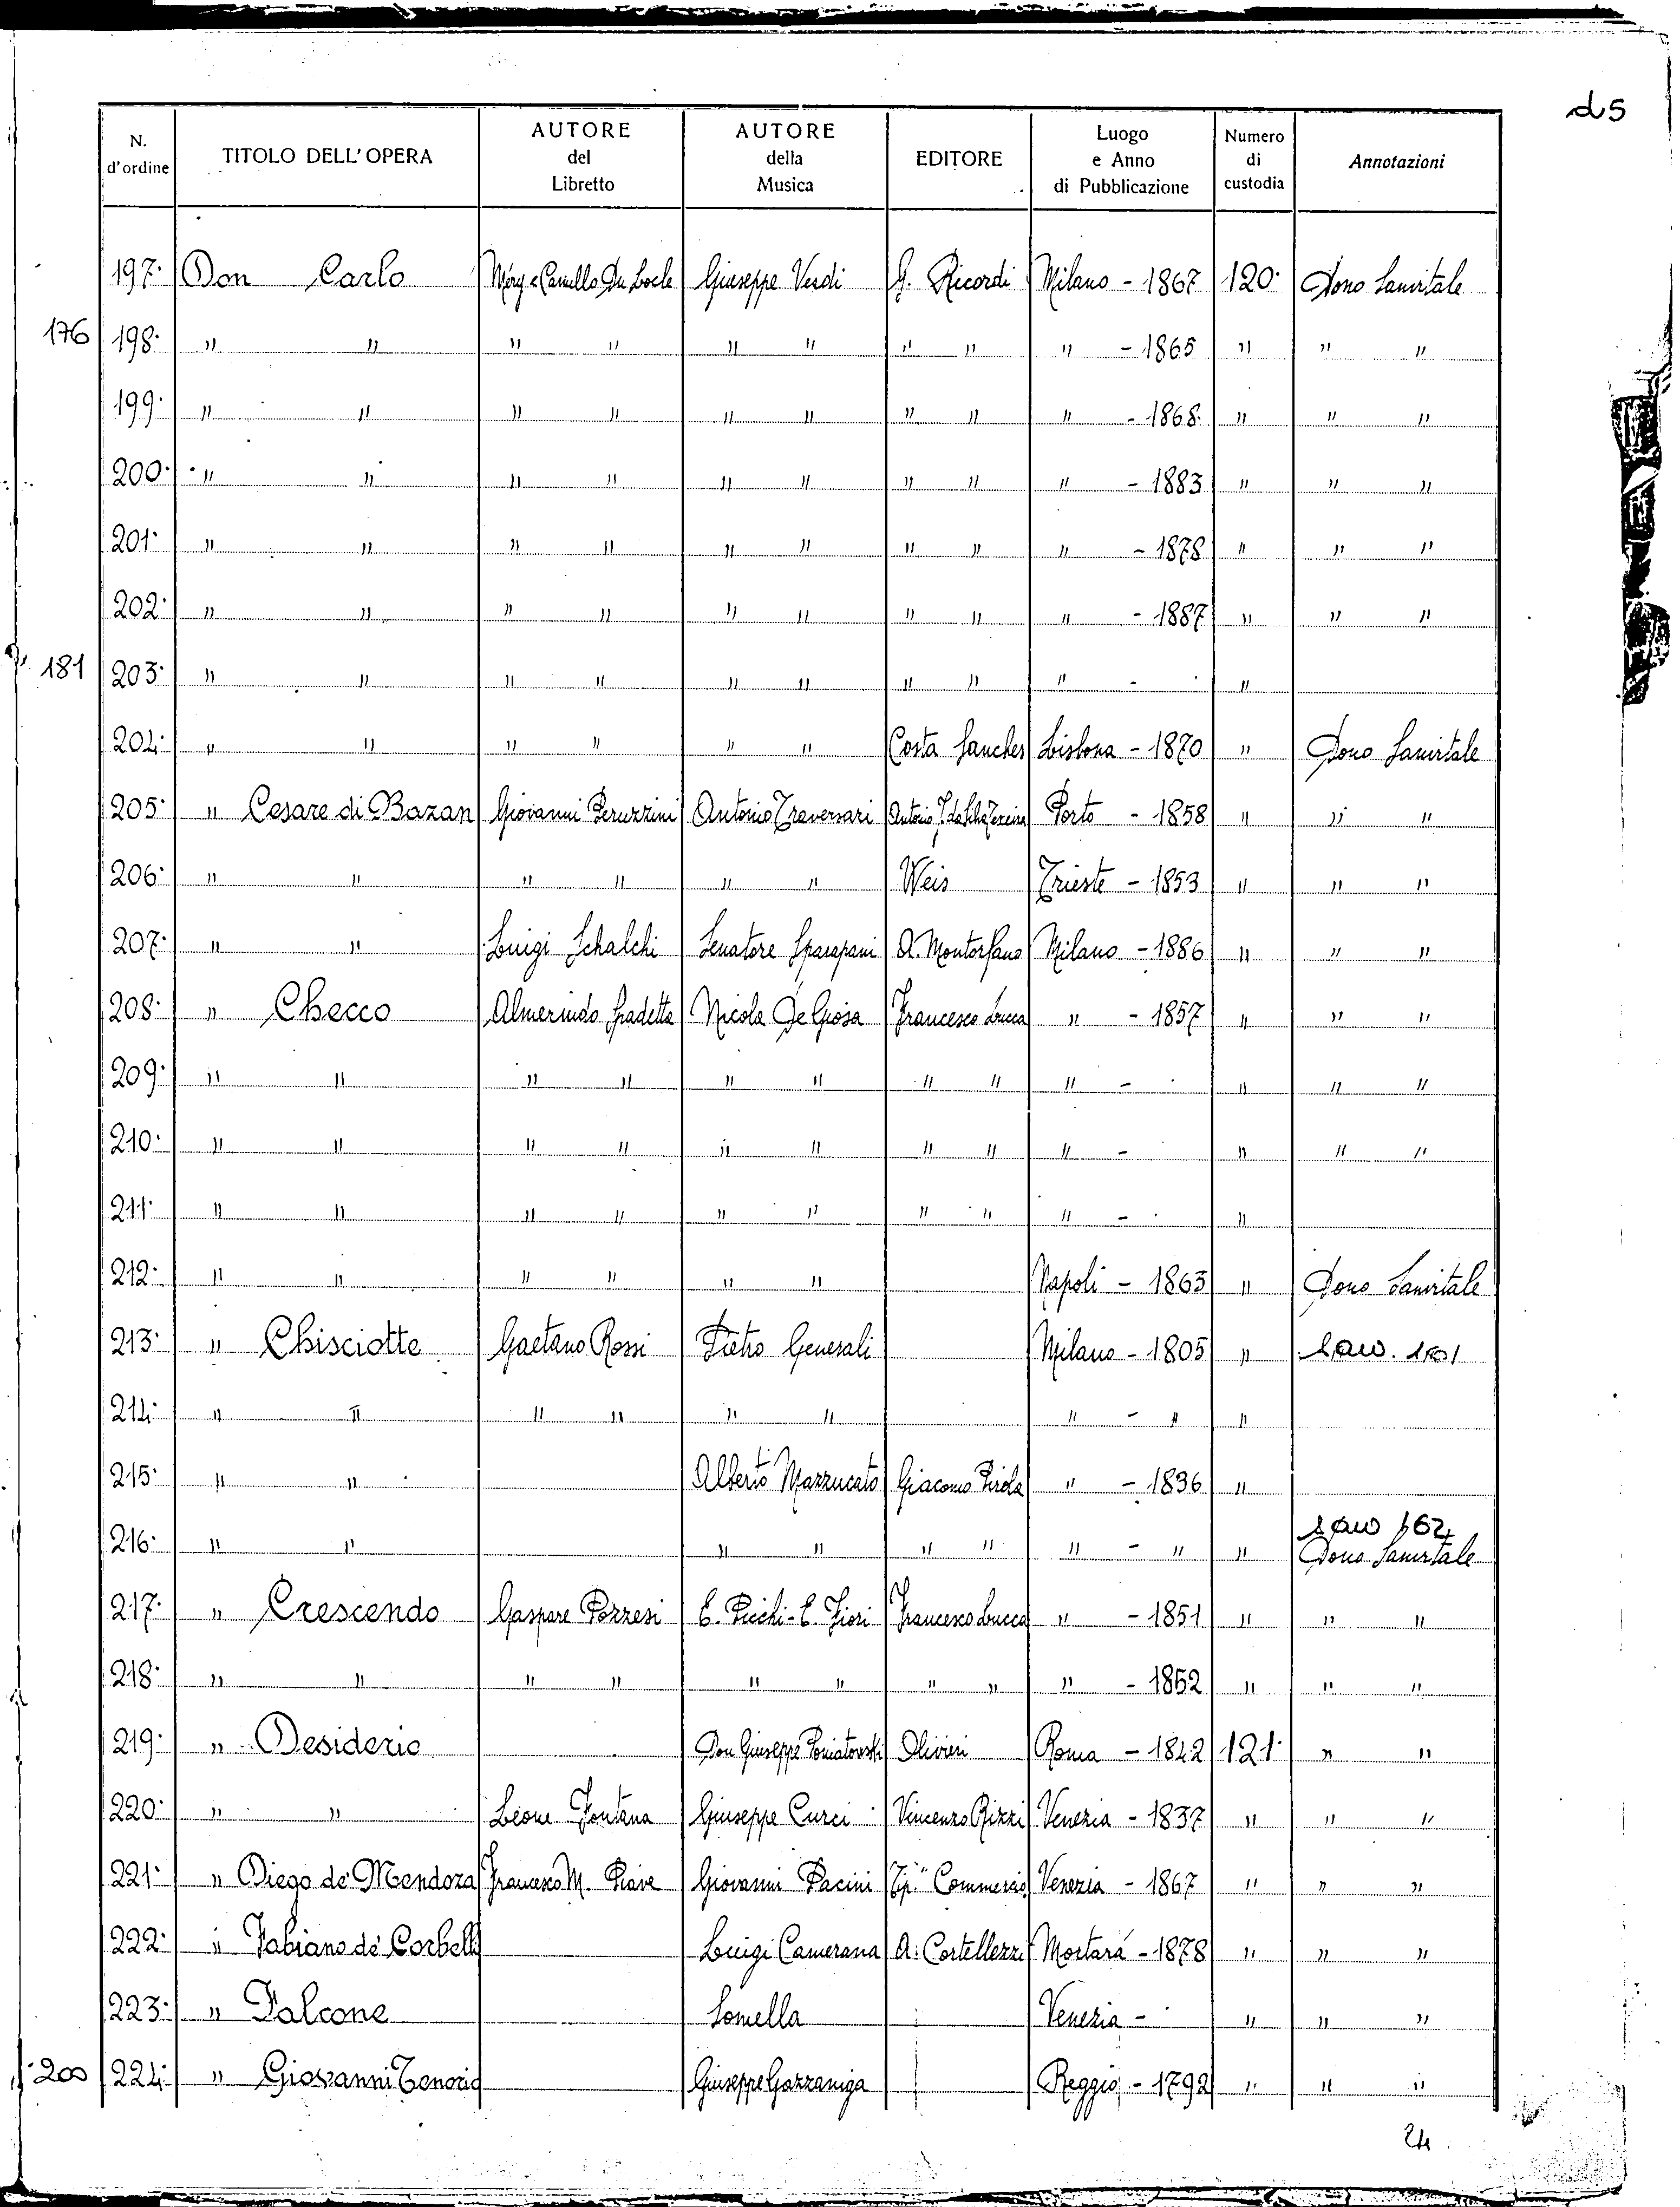 d5
N. d'ordine TITOLO DELL'OPERA AUTORE del Libretto AUTORE della Musica EDITORE Luogo e Anno di Pubblicazione Numero di custodia Annotazioni
197. Don Carlo Méry e Camillo Du Locle Giuseppe Verdi G. Ricordi Milano - 1867 120. Dono Sanvitale
176 198. " " " " " " " " " - 1865 " " "
199. " " " " " " " " " - 1868. " " "
200. " " " " " " " " " - 1883 " " "
201. " " " " " " " " " - 1878 " " "
202. " " " " " " " " " - 1887 " " "
181 203. " " " " " " " " " - "
204. " " " " " " Costa Sanches Lisbona - 1870 " Dono Sanvitale
205. " Cesare di Bazan Giovanni Peruzzini Antonio Traversari Antonio Porto - 1858 " " "
206. " " " " " " Weis Trieste - 1853 " " "
207. " " Luigi Schalchi Senatore Sparapani A. Montorfano Milano - 1886 " " "
208. " Checco Almerindo Spadetta Nicola De Giosa Francesco Lucca " - 1857 " " "
209. " " " " " " " " " - " " "
210. " " " " " " " " " - " " "
211. " " " " " " " " " - "
212. " " " " " " Napoli - 1863 " Dono Sanvitale
213. " Chisciotte Gaetano Rossi Pietro Generali Milano - 1805 "
214. " " " " " " " - " "
215. " " Alberto Mazzucato Giacomo Pirola " - 1836 "
216. " " " " " " " - " " Dono Sanvitale
217. " Crescendo Gaspare Pozzesi E. Picchi - E. Fiori Francesco Lucca " - 1851 " " "
218. " " " " " " " " " - 1852 " " "
219. " Desiderio Don Giuseppe Poniatowski Olivieri Roma - 1842 121. " "
220. " " Leone Fontana Giuseppe Curci Vincenzo Rizzi Venezia - 1837 " " "
221. " Diego de' Mendoza Francesco M. Piave Giovanni Pacini Tip. Commercio Venezia - 1867 " " "
222. " Fabiano de' Corbelli Luigi Camerana A. Cortellezzi Mortara - 1878 " " "
223. " Falcone Somella Venezia - " " "
200 224. " Giovanni Tenorio Giuseppe Gazzaniga Reggio - 1792 " " "
24